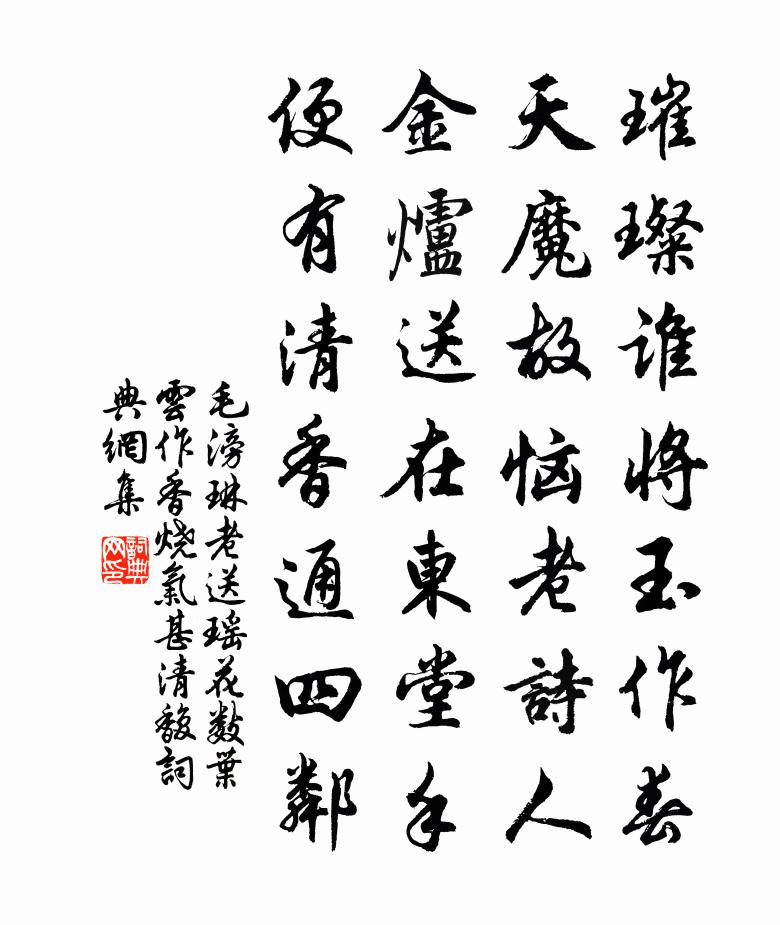 璀璨誰将玉作春
天魔故恼老詩人
金爐送在東堂手
便有清香通四鄰
毛滂琳老送瑶花数葉
雲作香烧氣甚清馥詞
典網集
詞典
网印